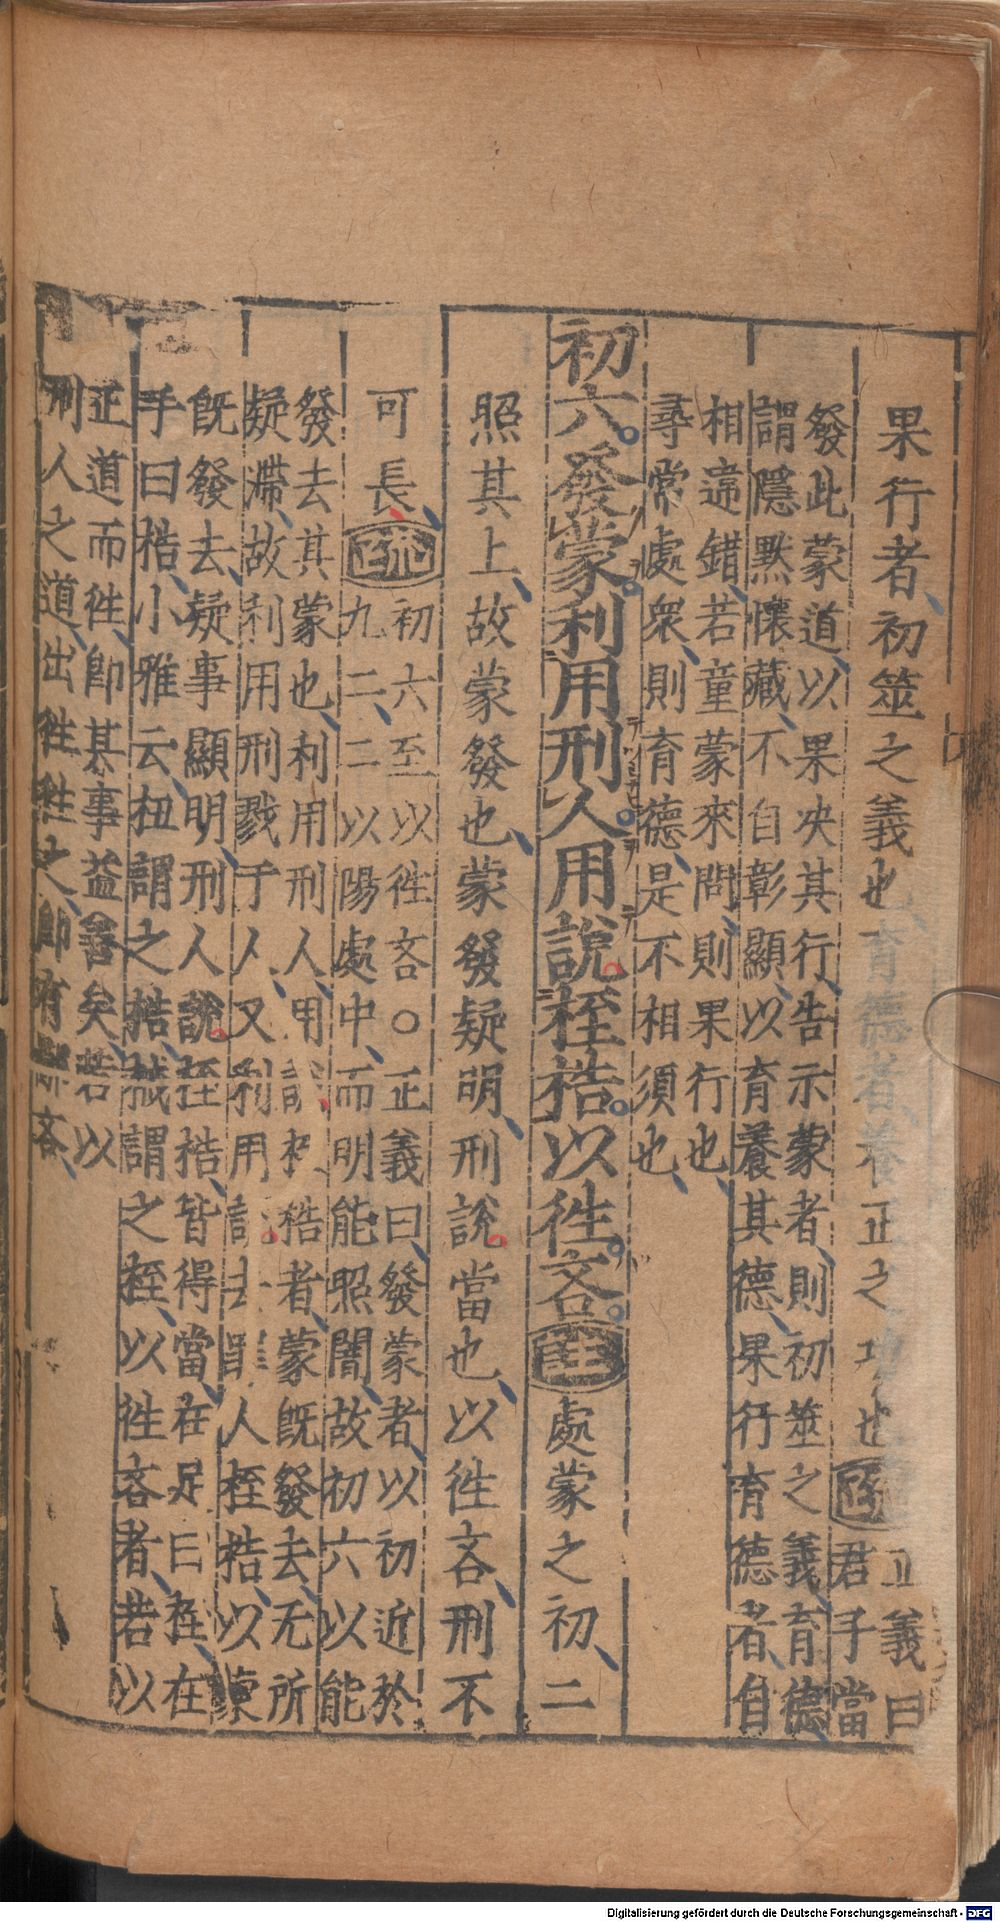 果行者初筮之義也育德者養正之功也疏正義曰
君子當
發此蒙道以果决其行告示蒙者則初筮之義育德
謂隱黙懷藏不自彰顯以育養其德果行育德者自
相違錯若童蒙來問則果行也
尋常處衆則育德是不相須也
初六發蒙利用刑人用說桎梏以徃吝注處蒙之初二
照其上故蒙發也蒙發疑明刑說當也以徃吝刑不
可長疏初六至以徃吝○正義曰發蒙者以初近於
九二二以陽處中而明能照闇故初六以能
發去其蒙也利用刑人用說桎梏者蒙旣發去无所
疑滯故利用刑戮于人又利用說去罪人桎梏以蒙
旣發去疑事顯明刑人說桎梏皆得當在足曰桎在
手曰梏小雅云杻謂之梏械謂之桎以徃吝者若以
正道而徃卽其事益善矣若以
刑人之道出徃徃之卽有鄙吝
Digitalisierung gefördert durch die Deutsche Forschungsgemeinschaft - DFG